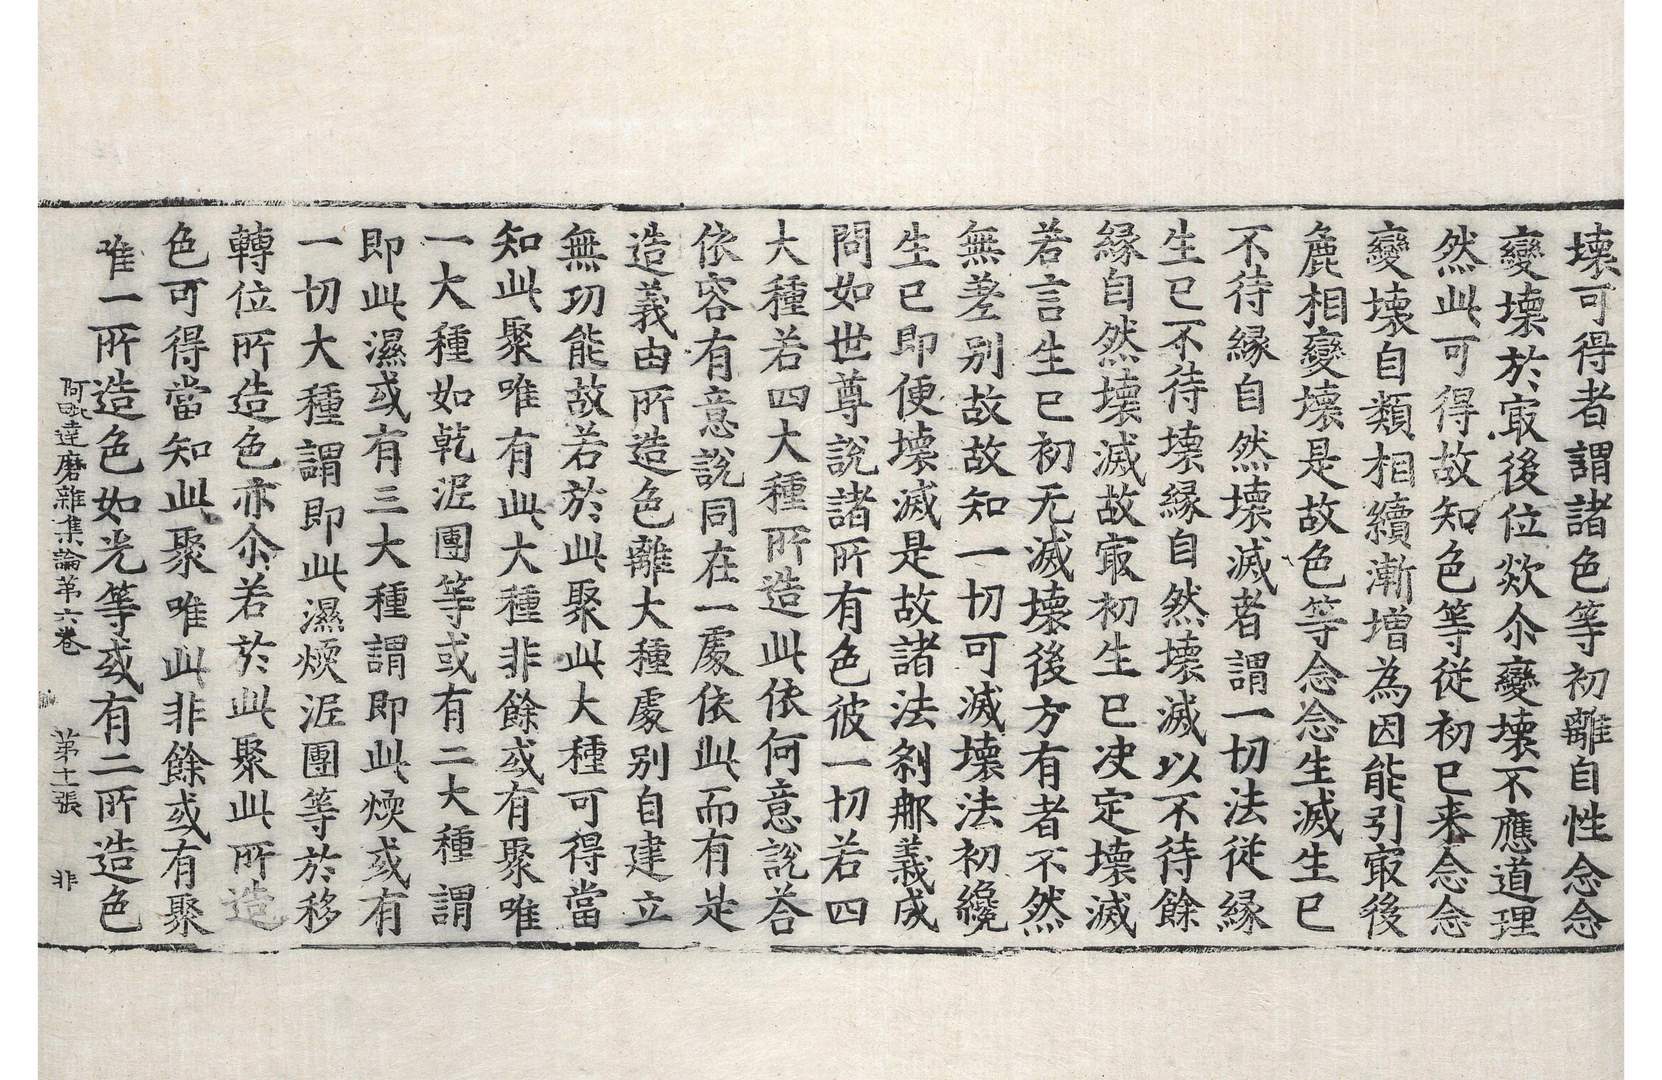 壞可得者謂諸色等初離自性念念
變壞於㝡後位欻尒變壞不應道理
然此可得故知色等從初已来念念
變壞自類相續漸增為因能引㝡後
麁相變壞是故色等念念生滅生已
不待緣自然壞滅者謂一切法從緣
生已不待壞緣自然壞滅以不待餘
緣自然壞滅故㝡初生已决定壞滅
若言生已初无滅壞後方有者不然
無差別故故知一切可滅壞法初纔
生已即便壞滅是故諸法刹那義成
問如世尊說諸所有色彼一切若四
大種若四大種所造此依何意說荅
依容有意說同在一處依此而有是
造義由所造色離大種處別自建立
無功能故若於此聚此大種可得當
知此聚唯有此大種非餘或有聚唯
一大種如乾涅團等或有二大種謂
即此濕或有三大種謂即此煗或有
一切大種謂即此濕煗涅團等於移
轉位所造色亦尒若於此聚此所造
色可得當知此聚唯此非餘或有聚
唯一所造色如光等或有二所造色
阿毗達磨雜集論第六卷 第十一張 非